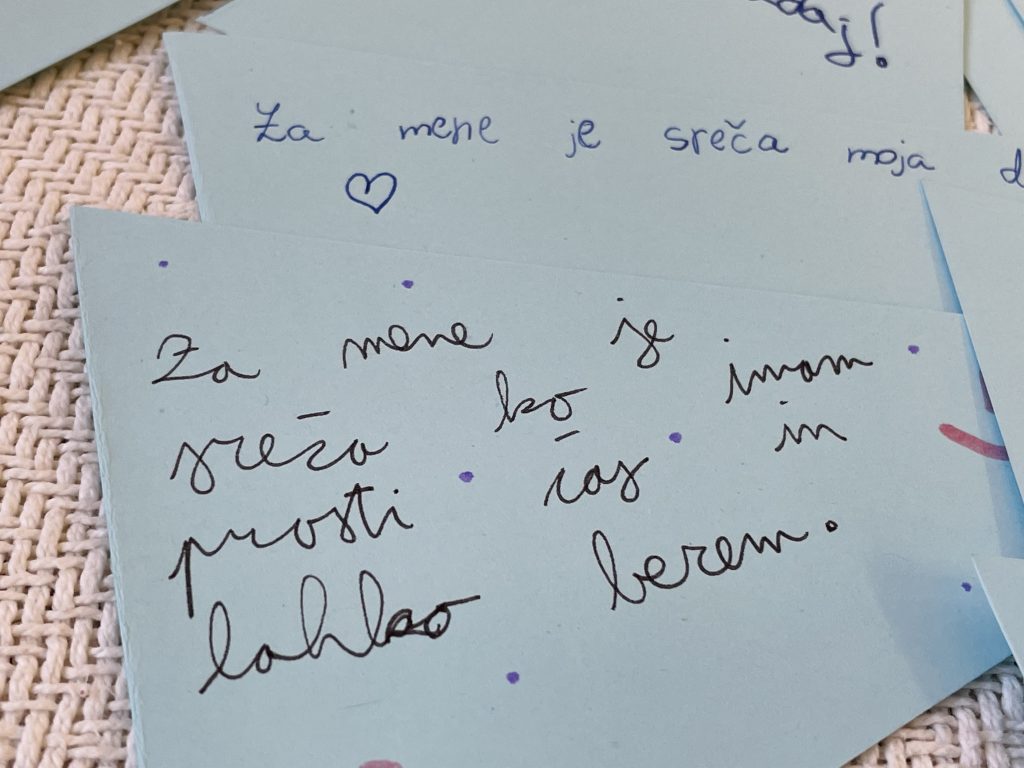 Za mene je sreča moja
Za mene je
sreča ko imam
prosti čas in
lahko berem.